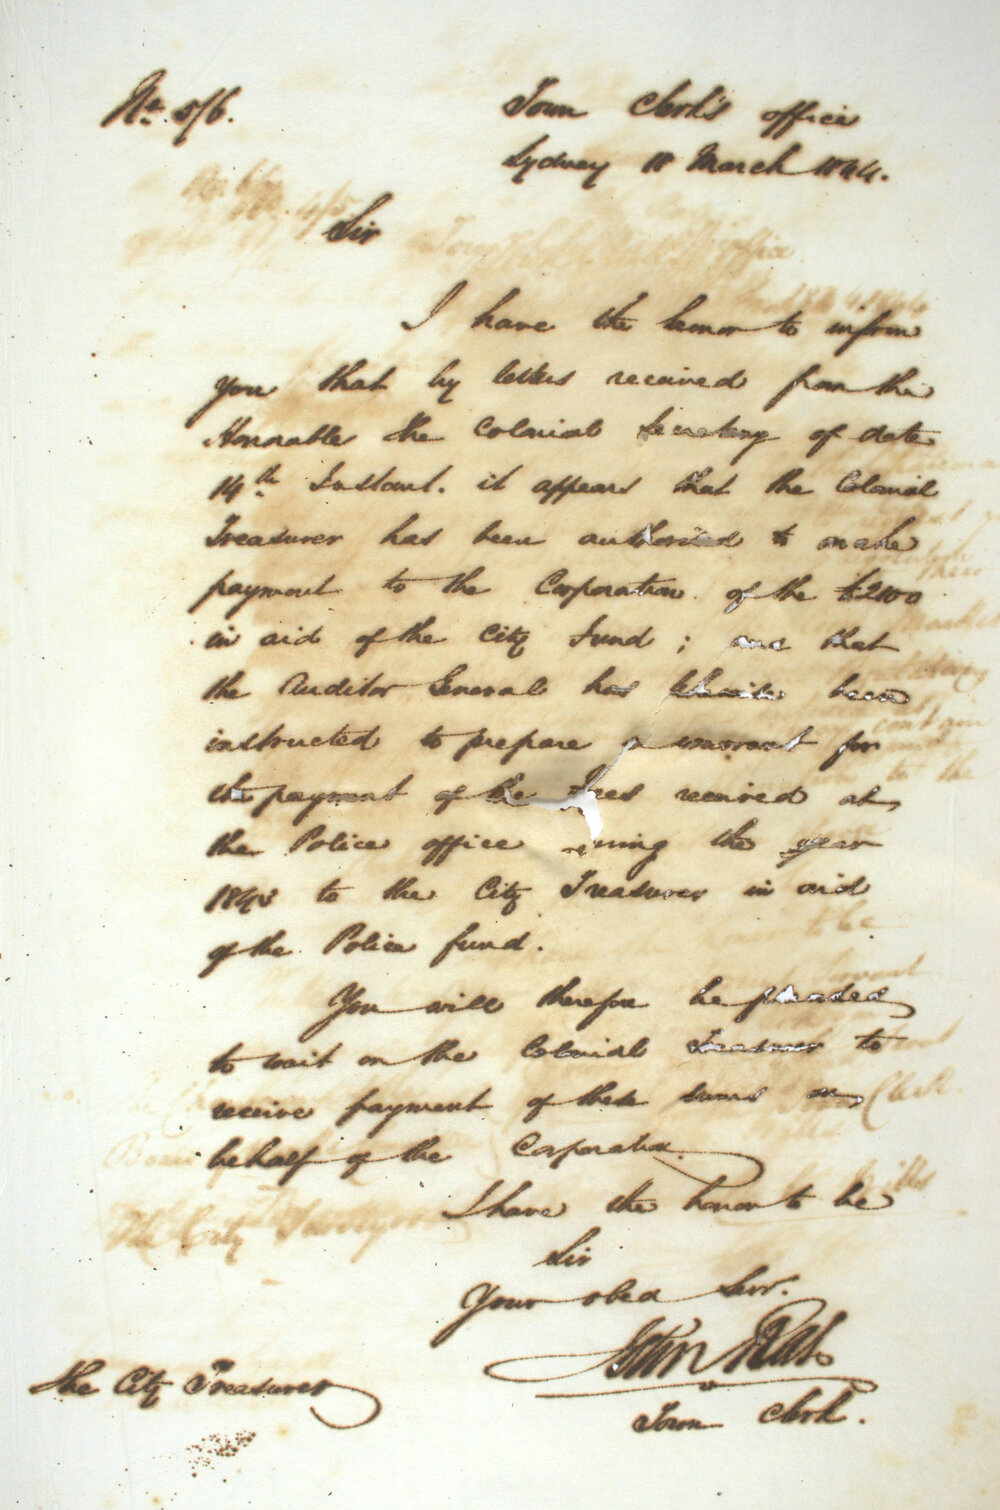 No. 5/6.
Town Clerk's office
Sydney 18 March 1844.
Sir
I have the honor to inform
you that by letters received from the
Honorable the Colonial Secretary of date
14th Instant. it appears that the Colonial
Treasurer has been authorised to make
payment to the Corporation of the
in aid of the City Fund; and that
the Auditor General has likewise been
instructed to prepare a warrant for
the payment of the Fees received at
the Police office during the year
1843 to the City Treasurer in aid
of the Police fund.
You will therefore be pleased
to wait on the Colonial Treasurer to
receive payment of these sums on
behalf of the Corporation.
I have the honor to be
Sir
Your obed Serv.
John
Town Clerk.
The City Treasurer